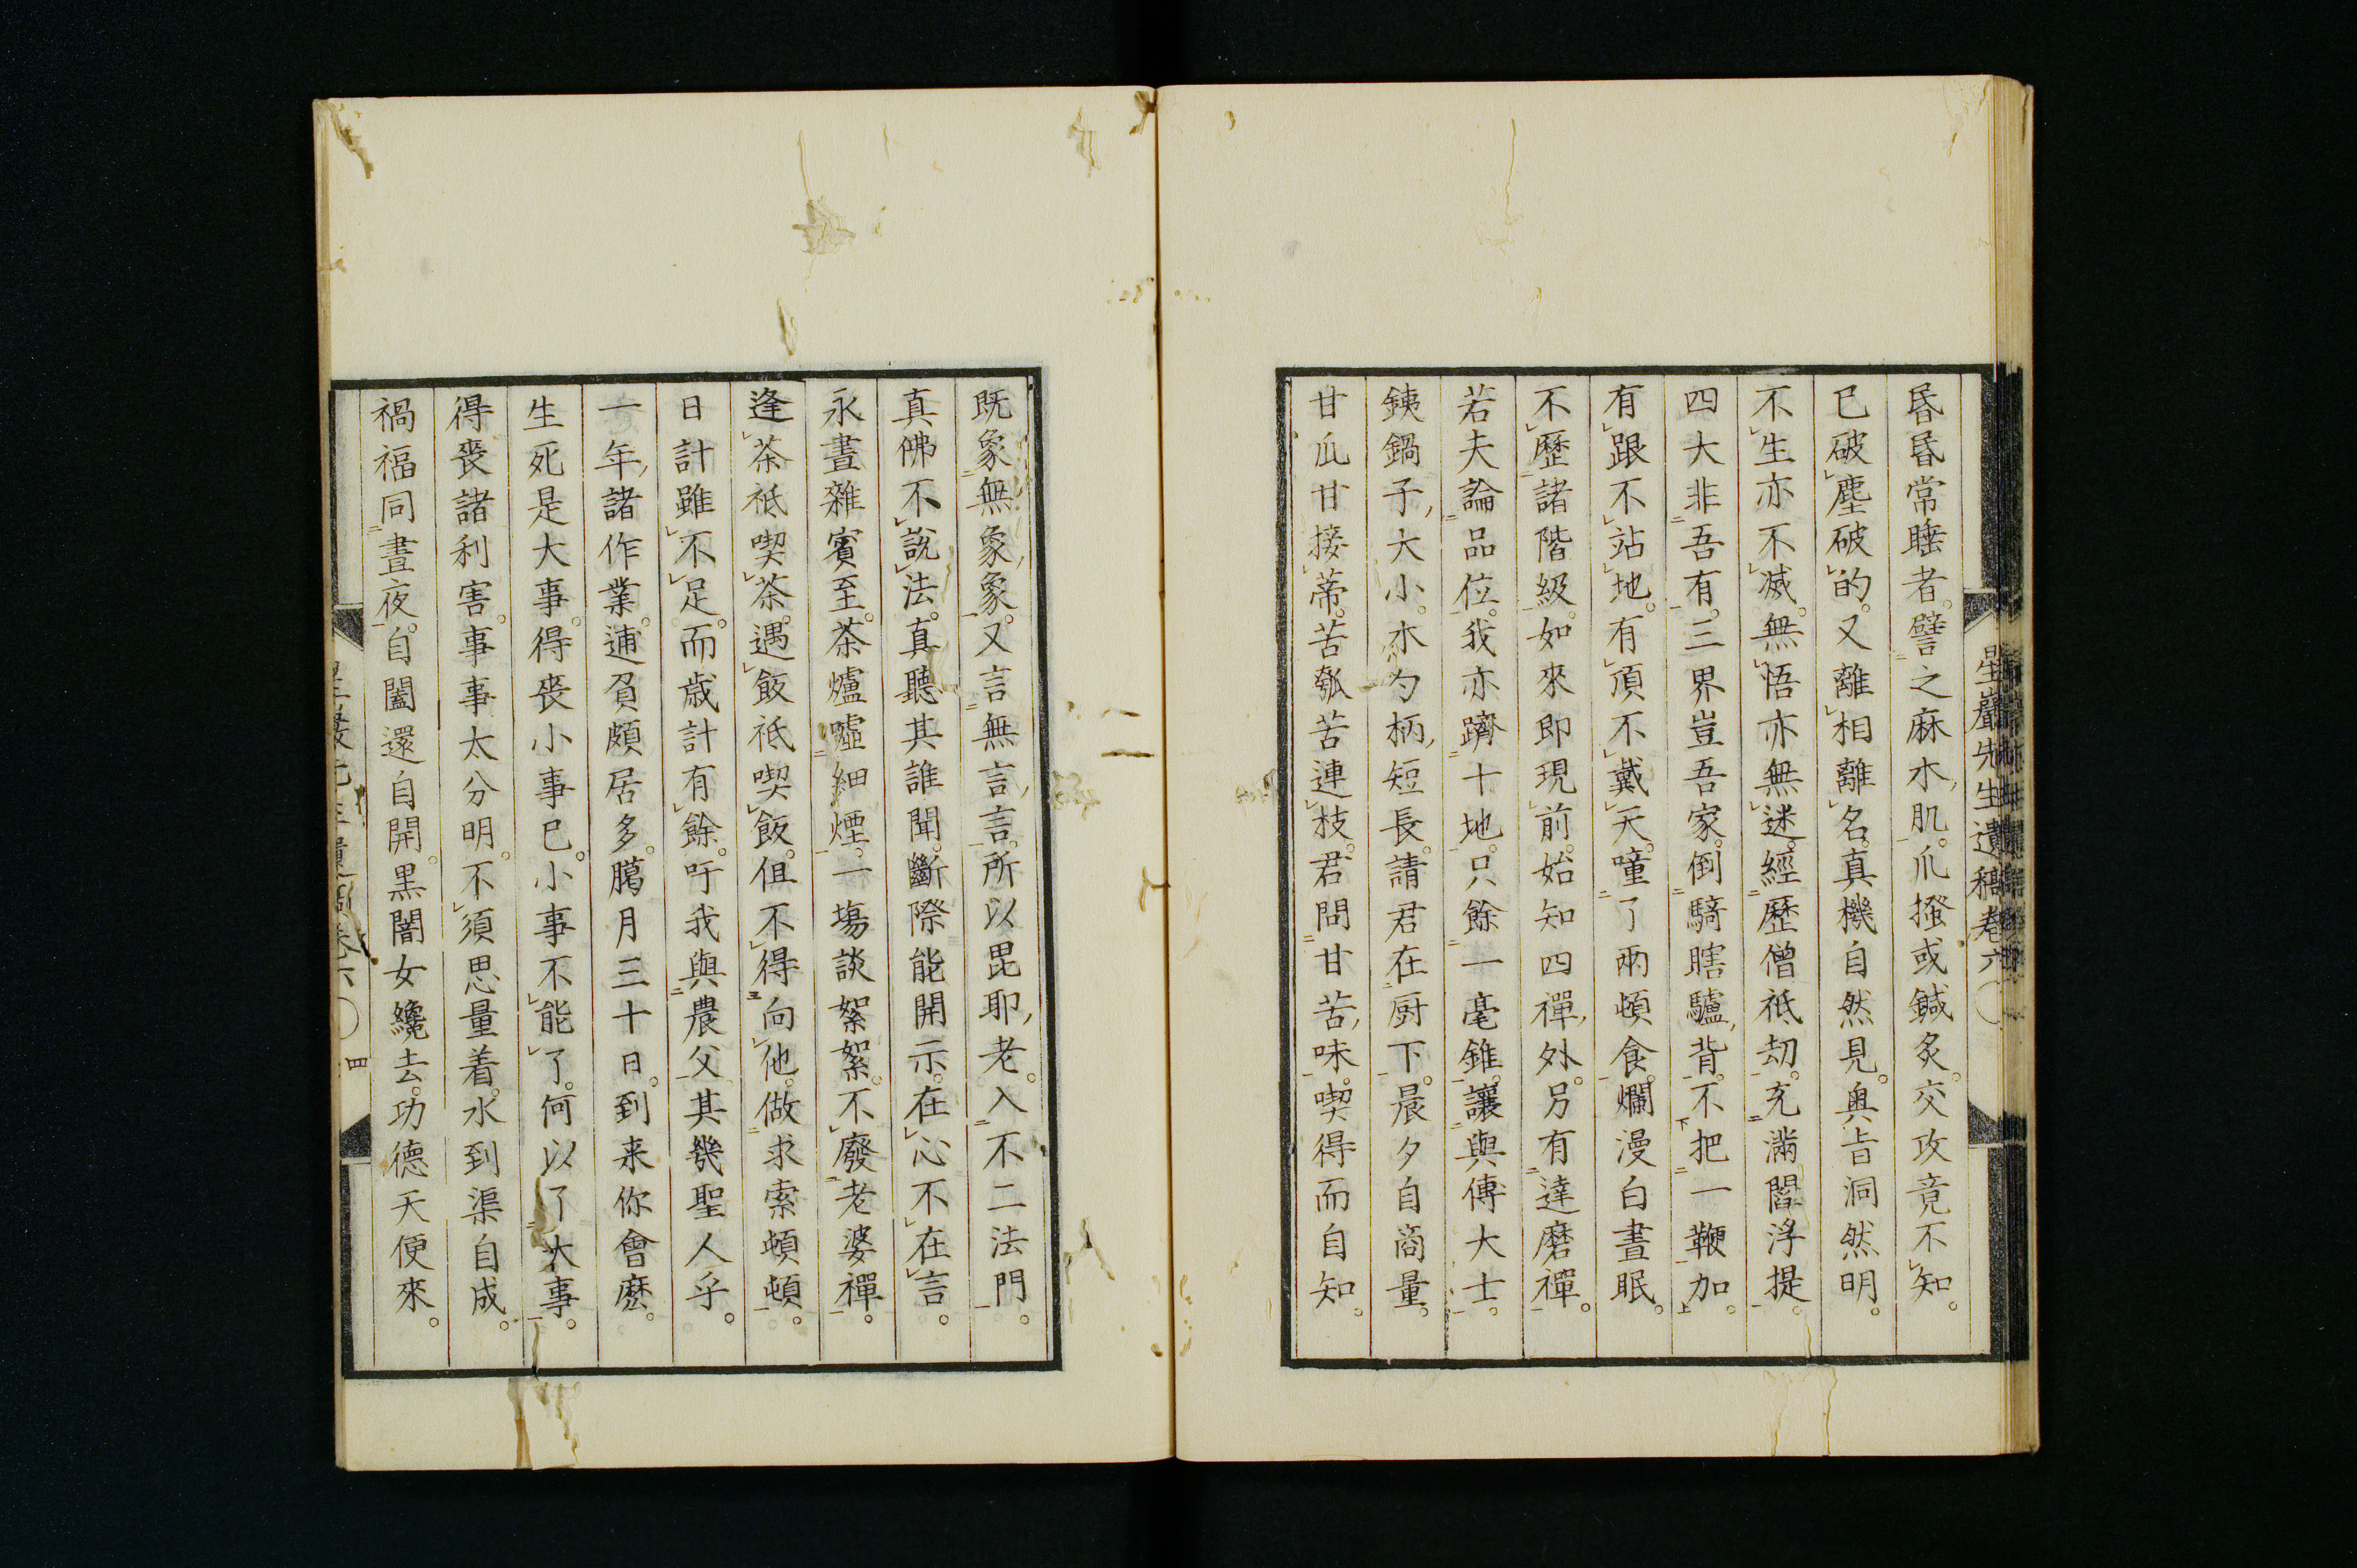 星巖先生遺稿卷六
昏昏常睡者。譬之麻木肌。爪搔或鍼炙。交攻竟不知。
已破塵破的。又離相離名。真機自然見。奥旨洞然明。
不生亦不滅。無悟亦無迷。經歷僧祇劫。充滿閻浮提。
四大非吾有。三界豈吾家。倒騎瞎驢背。不把一鞭加。
有跟不站地。有頂不戴天。噇了兩頓食。爛漫白晝眠。
不歷諸階級。如來即現前。始知四禪外。另有達磨禪。
若夫論品位。我亦躋十地。只餘一毫錐。讓與傅大士。
銕鍋子大小。木勺柄短長。請君在厨下。晨夕自商量。
甘瓜甘接蒂。苦瓠苦連枝。君問甘苦味。喫得而自知。
既象無象象。又言無言言。所以毘耶老。入不二法門。
真佛不說法。真聽其誰聞。斷際能開示。在心不在言。
永晝雜賓至。茶爐噓細煙。一塲談絮絮。不廢老婆禪。
逢茶祇喫茶。遇飯祇喫飯。但不得向他。做求索頓頓。
日計雖不足。而歲計有餘。吁我與農父。其幾聖人乎。
一年諸作業。逋負頗居多。臈月三十日。到来你會麼。
生死是大事。得喪小事已。小事不能了。何以了大事。
得喪諸利害。事事太分明。不須思量着。水到渠自成。
禍福同晝夜。自闔還自開。黒闇女纔去。功德天便來。
四